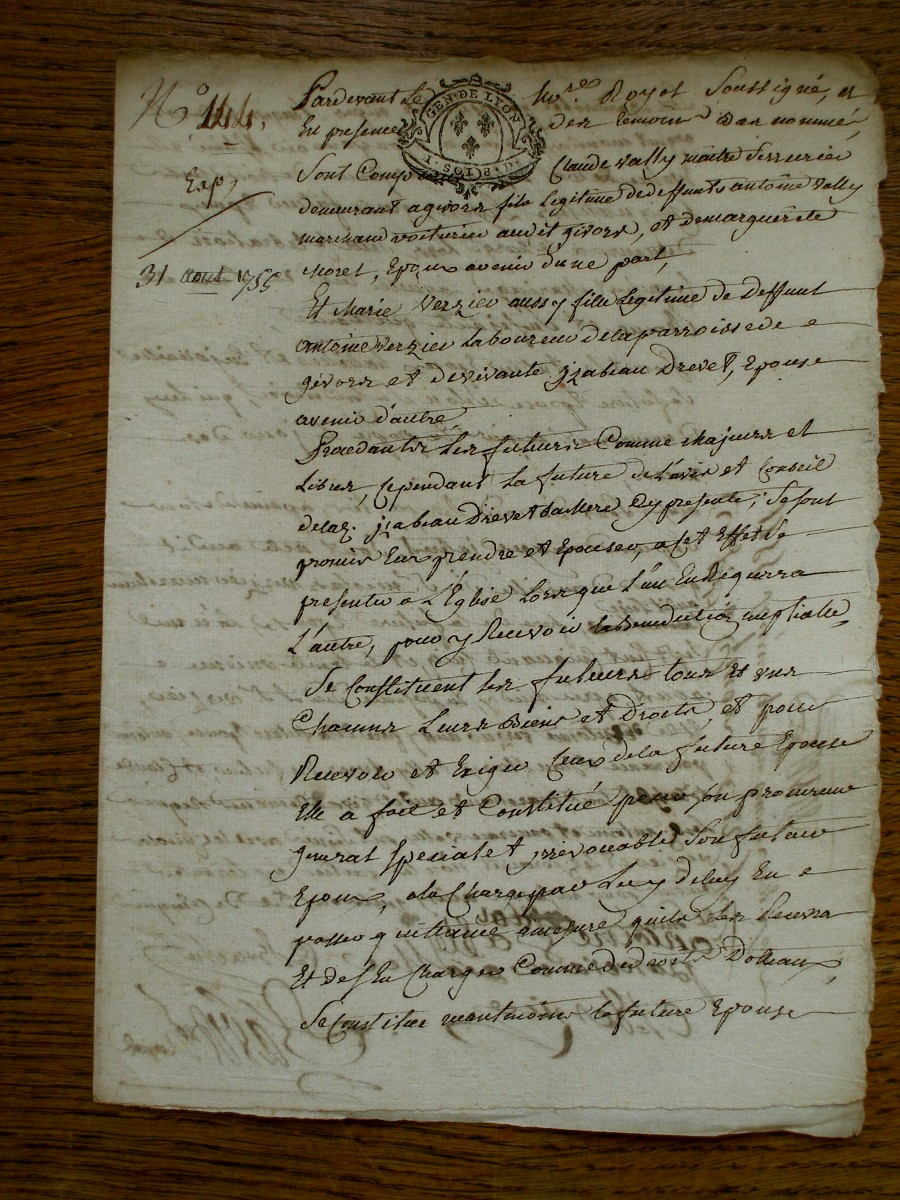 N.o 144.
Exp,
31 aout 1755
GEN. DE LYON
1. SOL 8. D.
Pardevant Le no.re Royal Soussigné, et
En presence des temoins bas nommé,
Sont Comp Claude vally maitre Serrurier
demeurant a givors fils Legitime de deffunts antoine vally
marchand voiturier audit givors, et de marguerite
Moret, Epoux avenir d'une part,
Et Marie Verzier aussy fille Legitime de Deffunt
antoine verzier Laboureur de la parroisse de
givors et de vivante yzabeau Drevet, Epouse
avenir d'autre,
Procedants Les futurs Comme Majeurs et
Libres, Cependant La future de L'avis et Conseil
de lad. yzabeau Drevet sa Mere Icy presente, Se sont
promis Eux prendre et Epouser, a Cet Effet Se
presenter a L'Eglise Lors que L'un En Requerra
L'autre, pour y Recevoir la Benediction nuptialle,
Se Constituent Les futurs tous et uns
Chacuns Leurs Biens et Droits, et pour
Recevoir et Exiger Ceux de la future Epouse
Elle a fait et Constitué pour son procureur
general special et irrevocable Son futur
Epoux, a la Charge par Luy de luy En
passer quittance amesure quil les Recevra
Et de s'En Charger Comme de droits Dotaux,
Se Constitue neantmoins la future Epouse